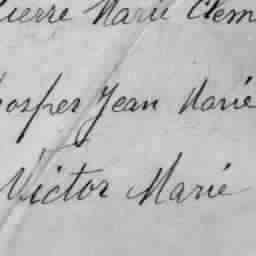 Pierre Marie Clem
rosper Jean Marie
Victor Marie